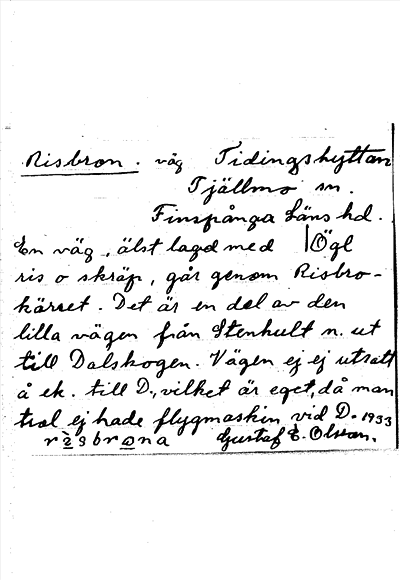 Risbron. väg Tidingshyttan
Tjällmo sn.
Finspånga Läns hd.
En väg, älst lagd med Ögl
ris o skräp, går genom Risbro-
kärret. Det är en del av den
lilla vägen från Stenhult n. ut
till Dalskogen. Vägen ej ej utsatt
å ek. till D., vilket är eget, då man
trol ej hade flygmaskin vid D. 1933
risbrona Gustaf E. Olsson.